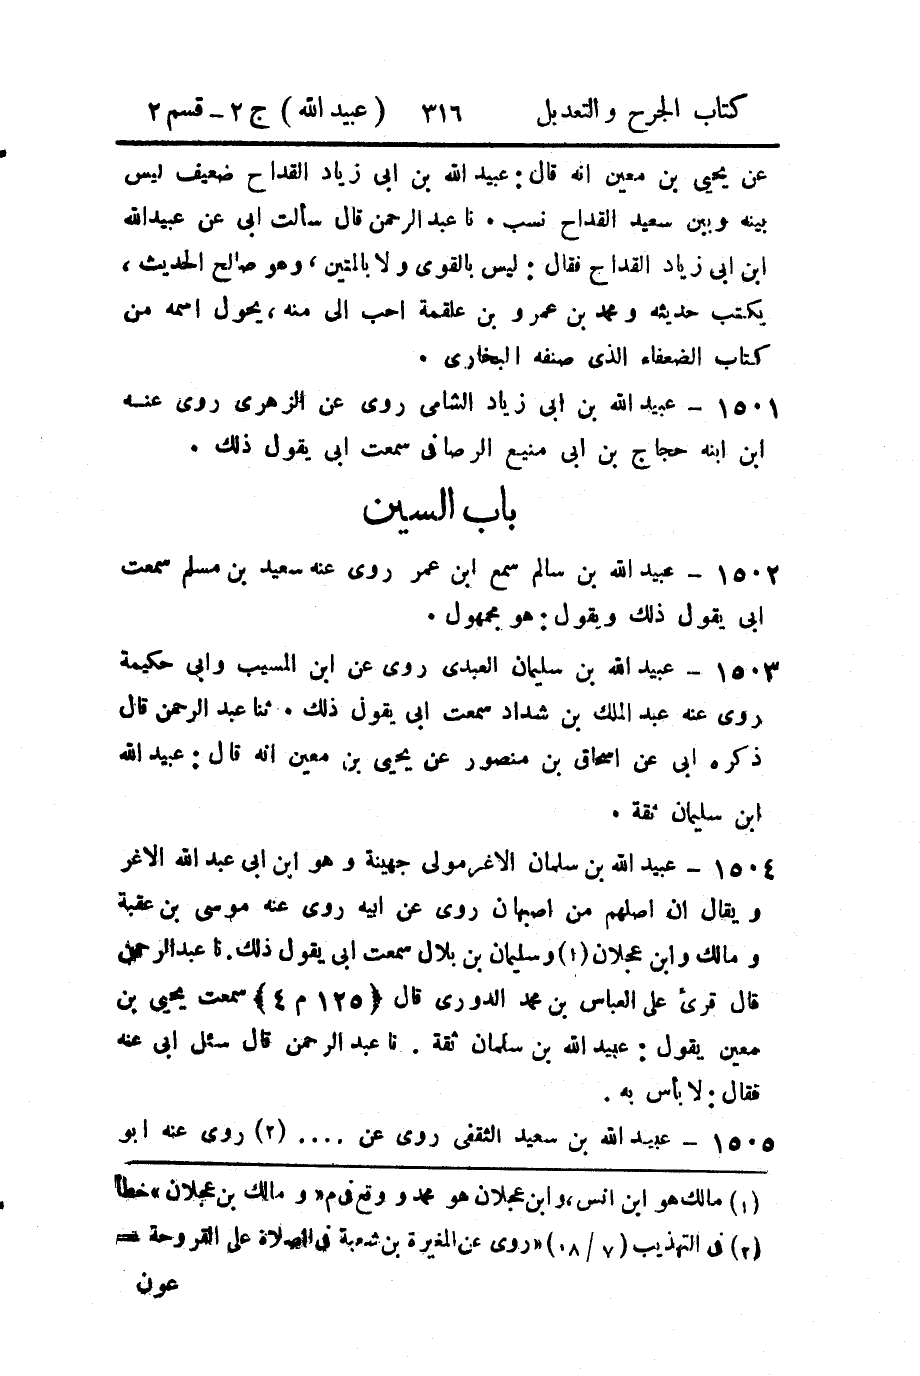 كتاب الجرح والتعديل ٣١٦ ( عبيد الله ) ج ٢ - قسم ٢
عن يحيى بن معين انه قال : عبيد الله بن ابى زياد القداح ضعيف ليس
بينه وبين سعيد القداح نسب . نا عبد الرحمن قال سألت ابى عن عبيدالله
ابن ابى زياد القداح فقال : ليس بالقوى ولا بالمتين ، وهو صالح الحديث ،
يكتب حديثه ومحمد بن عمرو بن علقمة احب الى منه ، يحول اسمه من
كتاب الضعفاء الذى صنفه البخارى .
١٥٠١ - عبيد الله بن ابى زياد الشامى روى عن الزهرى روى عنه
ابن ابنه حجاج بن ابى منيع الرصافى سمعت ابى يقول ذلك .
باب السين
١٥٠٢ - عبيد الله بن سالم سمع ابن عمر روى عنه سعيد بن مسلم سمعت
ابى يقول ذلك ويقول : هو مجهول .
١٥٠٣ - عبيد الله بن سليمان العبدى روى عن ابن المسيب وابى حكيمة
روى عنه عبد الملك بن شداد سمعت ابى يقول ذلك . ثنا عبد الرحمن قال
ذكره ابى عن اسحاق بن منصور عن يحيى بن معين انه قال : عبيد الله
ابن سليمان ثقة .
١٥٠٤ - عبيد الله بن سلمان الاغر مولى جهينة وهو ابن ابى عبد الله الاغر
ويقال ان اصلهم من اصبهان روى عن ابيه روى عنه موسى بن عقبة
ومالك وابن عجلان (١) وسليمان بن بلال سمعت ابى يقول ذلك . نا عبدالرحمن
قال قرئ على العباس بن محمد الدورى قال ﴿١٢٥ م ٤﴾ سمعت يحيى بن
معين يقول : عبيد الله بن سلمان ثقة . نا عبد الرحمن قال سئل ابى عنه
فقال : لا بأس به .
١٥٠٥ - عبيد الله بن سعيد الثقفى روى عن .... (٢) روى عنه ابو
(١) مالك هو ابن انس ، وابن عجلان هو محمد ووقع فى م « ومالك بن عجلان » خطأ
(٢) فى التهذيب (٧ / ٠٨) « روى عن المغيرة بن شعبة فى الصلاة على الفروحة =
عون